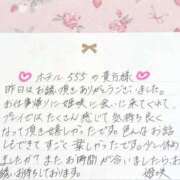 ホテル 555 の貴方様
昨日はお誘い頂きありがとうございました。
お仕事帰りに姫咲に会いに来てくれて、
プレイではたくさん感じて気持ち良く
なって頂き嬉しかったです。色んなお話
もできてすごく楽しかったです。少し休め
ましたか？またお時間が合いましたらお
誘いお待ちしています。 姫咲